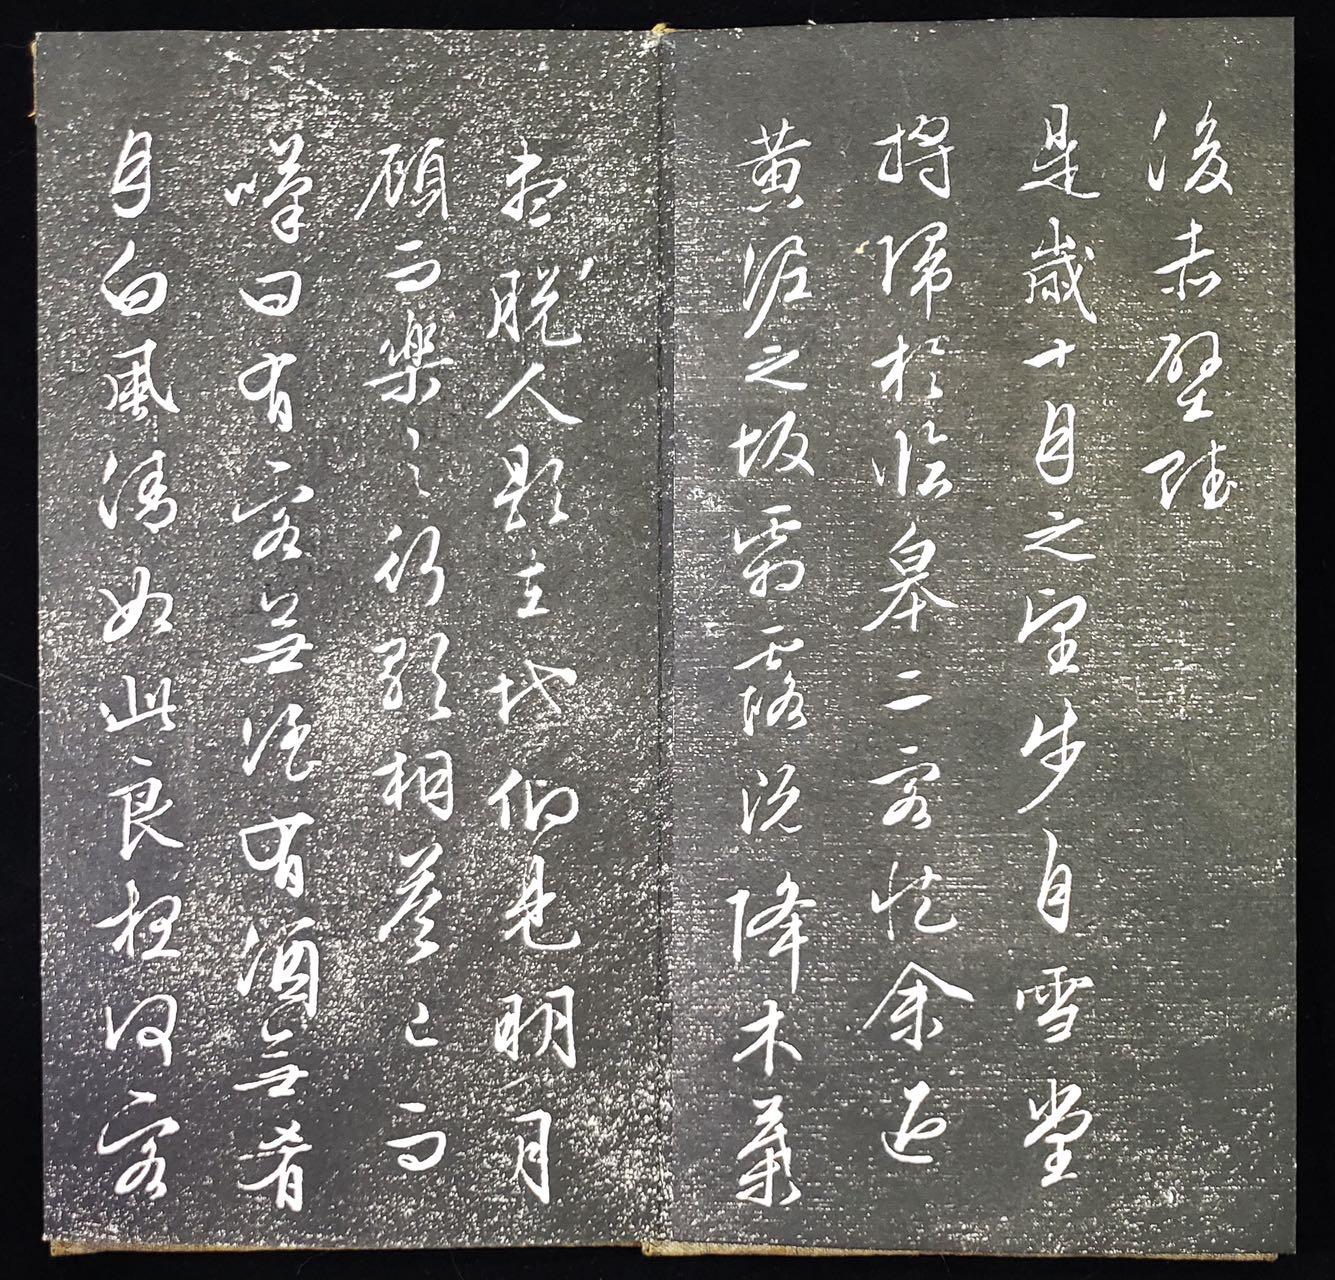 後赤壁賦
是歲十月之望步自雪堂
將歸於臨皋二客從余過
黃泥之坂霜露既降木葉
盡脫人影在地仰見明月
顧而樂之行歌相答已而
嘆曰有客無酒有酒無肴
月白風清如此良夜何客